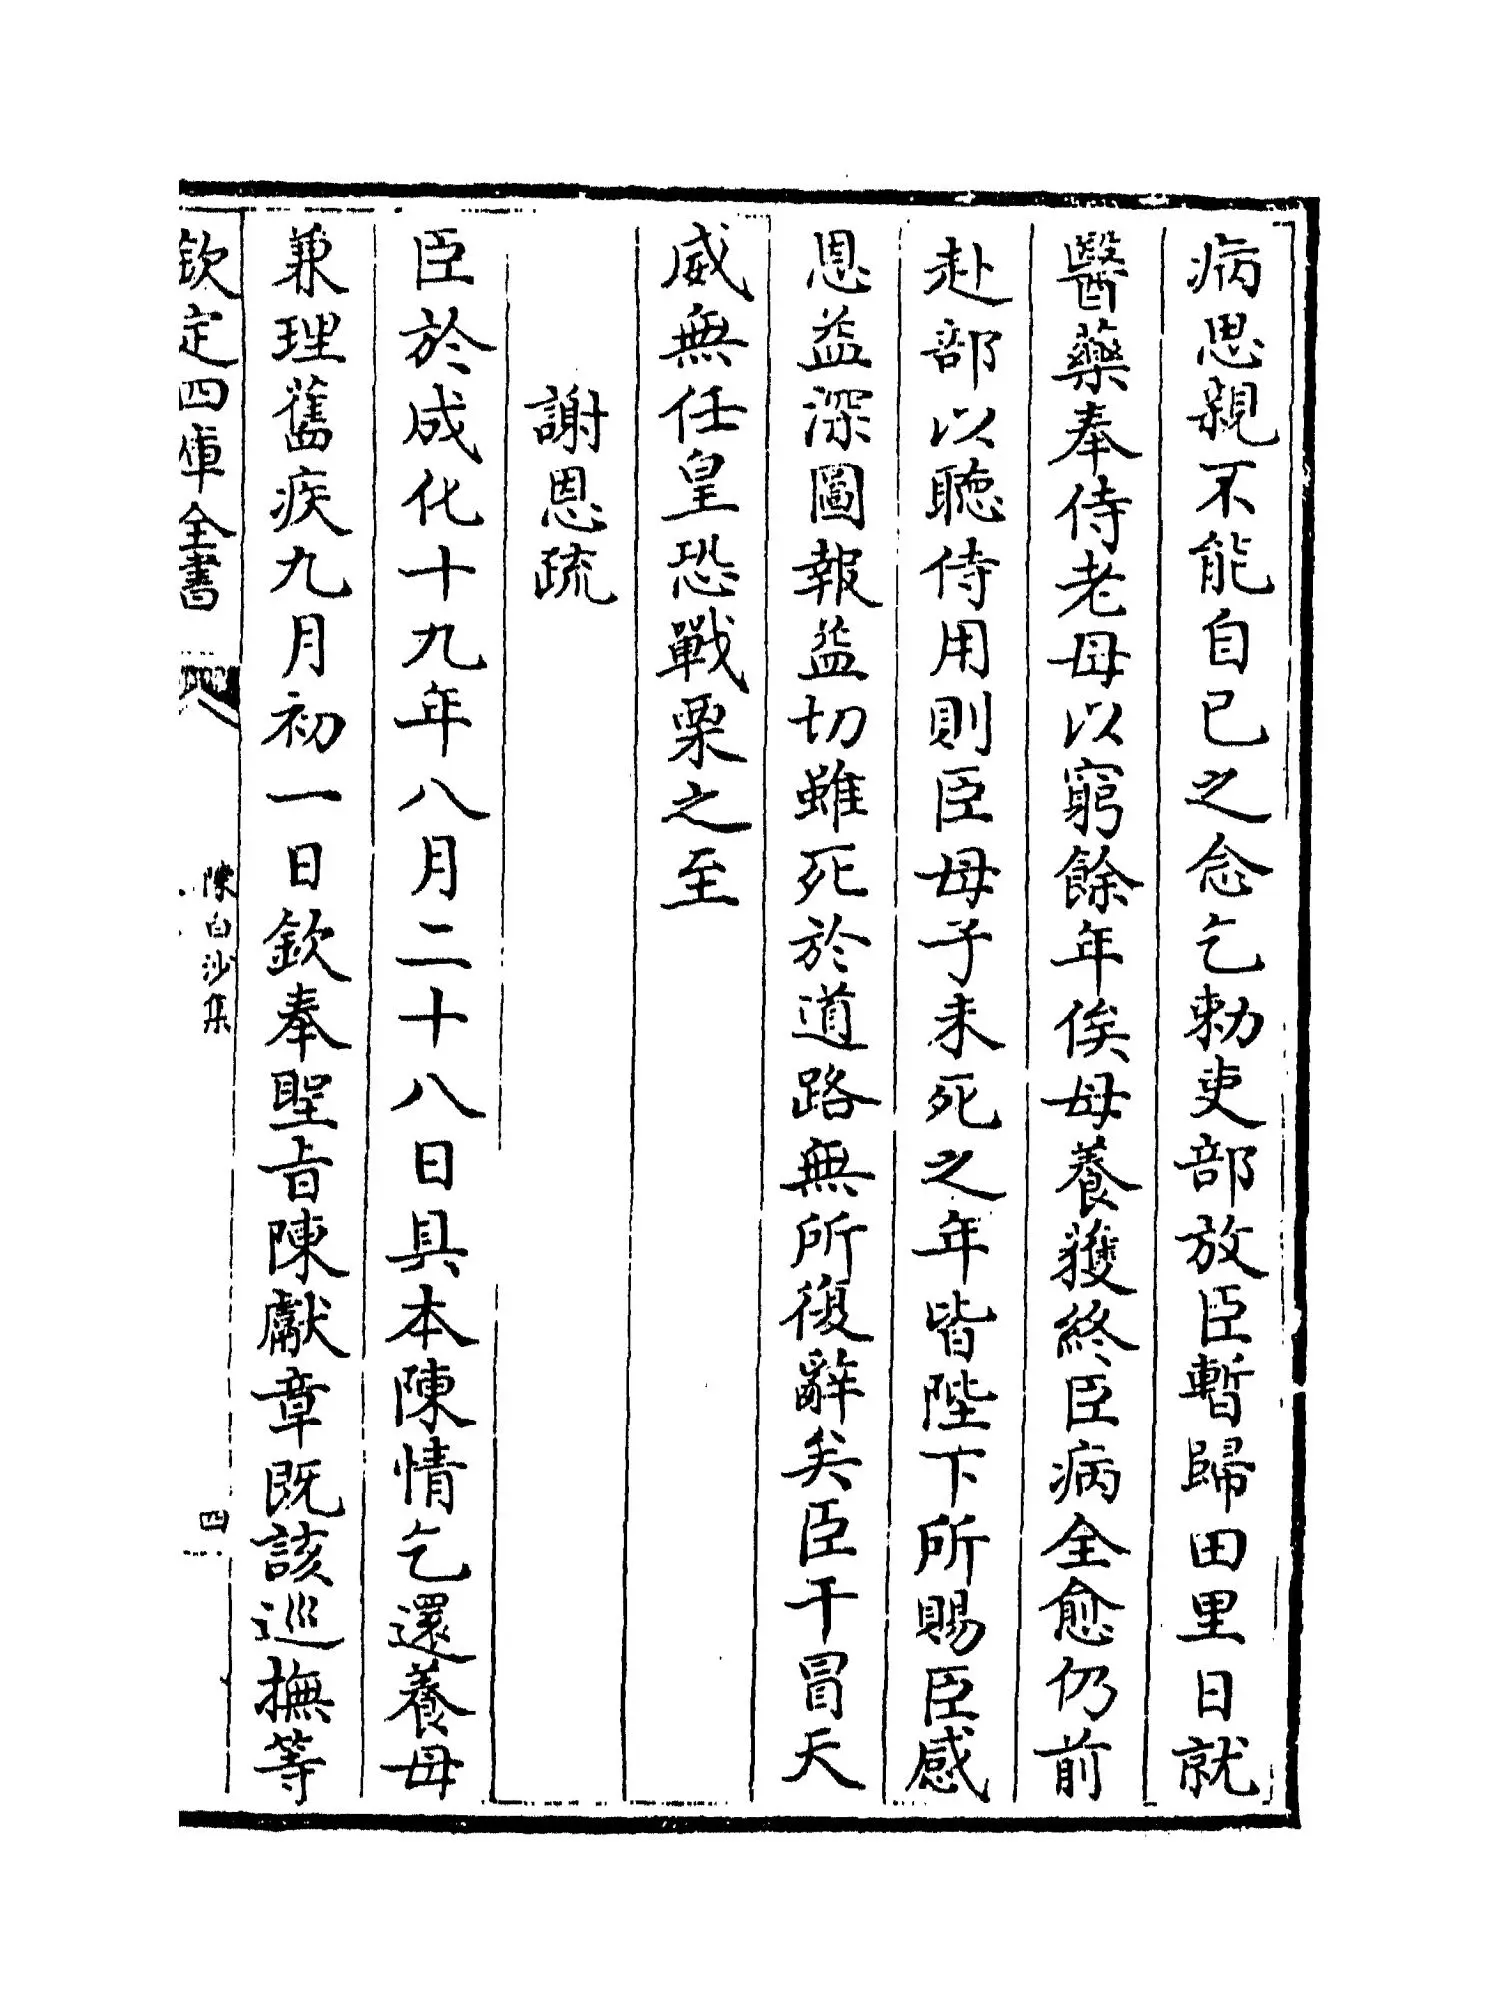 病思親不能自已之念乞勅吏部放臣暫歸田里日就
醫藥奉侍老母以窮餘年俟母養獲終臣病全愈仍前
赴部以聽侍用則臣母子未死之年皆陛下所賜臣感
恩益深圖報益切雖死於道路無所復辭矣臣干冒天
威無任皇恐戰栗之至
謝恩疏
臣於成化十九年八月二十八日具本陳情乞還養母
兼理舊疾九月初一日欽奉聖旨陳獻章既該巡撫等
欽定四庫全書
陳白沙集
四